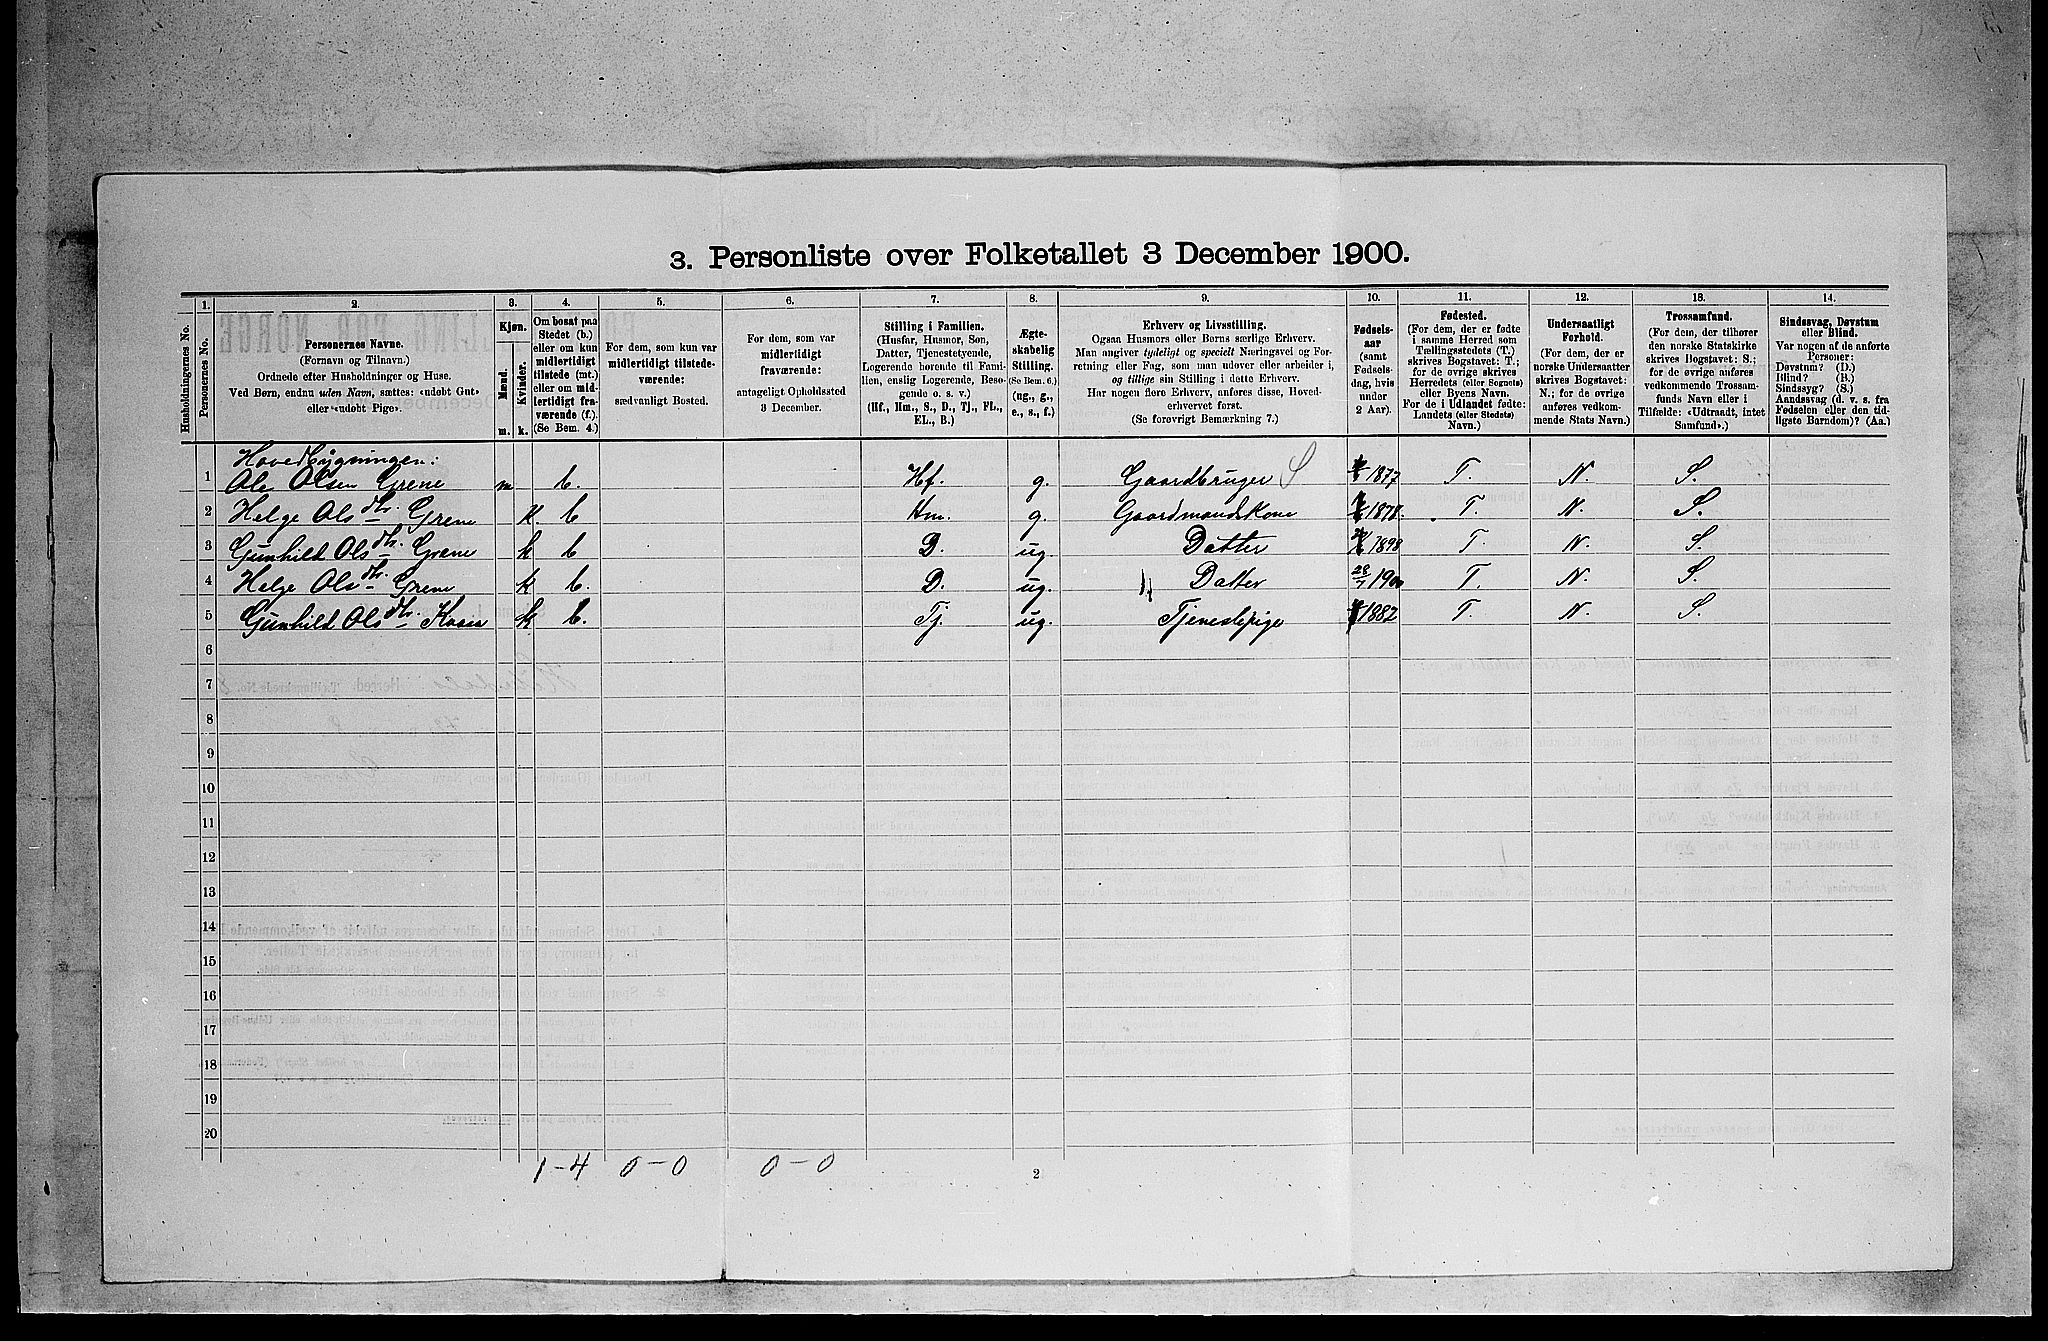 3. Personliste over Folketallet 3 December 1900.
1. 2. 3. 4. 5. 6. 7. 8. 9. 10. 11. 12. 13. 14.
Husholdningernes No.
Personernes No.
Personernes Navne.
(Fornavn og Tilnavn.)
Ordnede efter Husholdninger og Huse.
Ved Børn, endnu uden Navn, sættes: «udøbt Gut»
eller «udøbt Pige».
Kjøn.
Mænd.
Kvinder.
m. k.
Om bosat paa
Stedet (b.)
eller om kun
midlertidigt
tilstede (mt.)
eller om mid-
lertidigt fra-
værende (f.).
(Se Bem. 4.)
For dem, som kun var
midlertidigt tilstede-
værende:
sædvanligt Bosted.
For dem, som var
midlertidigt
fraværende:
antageligt Opholdssted
3 December.
Stilling i Familien.
(Husfar, Husmor, Søn,
Datter, Tjenestetyende,
Logerende hørende til Fami-
lien, enslig Logerende, Besø-
gende o. s. v.)
(Hf., Hm., S., D., Tj., FL.,
EL., B.)
Ægte-
skabelig
Stilling.
(Se Bem. 6.)
(ug., g.,
e., s., f.)
Erhverv og Livsstilling.
Ogsaa Husmors eller Børns særlige Erhverv.
Man angiver tydeligt og specielt Næringsvei og For-
retning eller Fag, som man udøver eller arbeider i,
og tillige sin Stilling i dette Erhverv.
Har nogen flere Erhverv, anføres disse, Hoved-
erhvervet først.
(Se forøvrigt Bemærkning 7.)
Fødsels-
aar
(samt
Fødsels-
dag, hvis
under
2 Aar).
Fødested.
(For dem, der er fødte
i samme Herred som
Tællingsstedets (T.)
skrives Bogstavet: T.;
for de øvrige skrives
Herredets (eller Sognets)
eller Byens Navn.
For de i Udlandet fødte:
Landets (eller Stedets)
Navn.)
Undersaatligt
Forhold.
(For dem, der er
norske Undersaatter
skrives Bogstavet:
N.; for de øvrige
anføres vedkom-
mende Stats Navn.)
Trossamfund.
(For dem, der tilhører
den norske Statskirke
skrives Bogstavet: S.;
for de øvrige anføres
vedkommende Trossam-
funds Navn eller i
Tilfælde: «Udtraadt, intet
Samfund».)
Sindssvag, Døvstum
eller Blind.
Var nogen af de anførte
Personer:
Døvstum? (D.)
Blind? (B.)
Sindssyg? (S.)
Aandssvag (d. v. s. fra
Fødselen eller den tid-
ligste Barndom)? (Aa.)
Hovedbygningen:
1 Ole Olsen Grene m b. Hf. g. Gaardbruger S. 1877 T. N. S.
2 Helge Olsdtr. Grene k. b Hm. g. Gaardmandskone 1878. T. N. S.
3 Gunhild Olsdtr. Grene k b D. ug. Datter 1898 T. N. S.
4 Helge Olsdtr. Grene k b. D. ug. Datter 28/7 1900 T. N. S.
5 Gunhild Olsdtr. Kaasa k b. Tj. ug. Tjenestepige 1882 T. N. S.
6
7
8
9
10
11
12
13
14
15
16
17
18
19
20
1-4 0-0 0-0 2